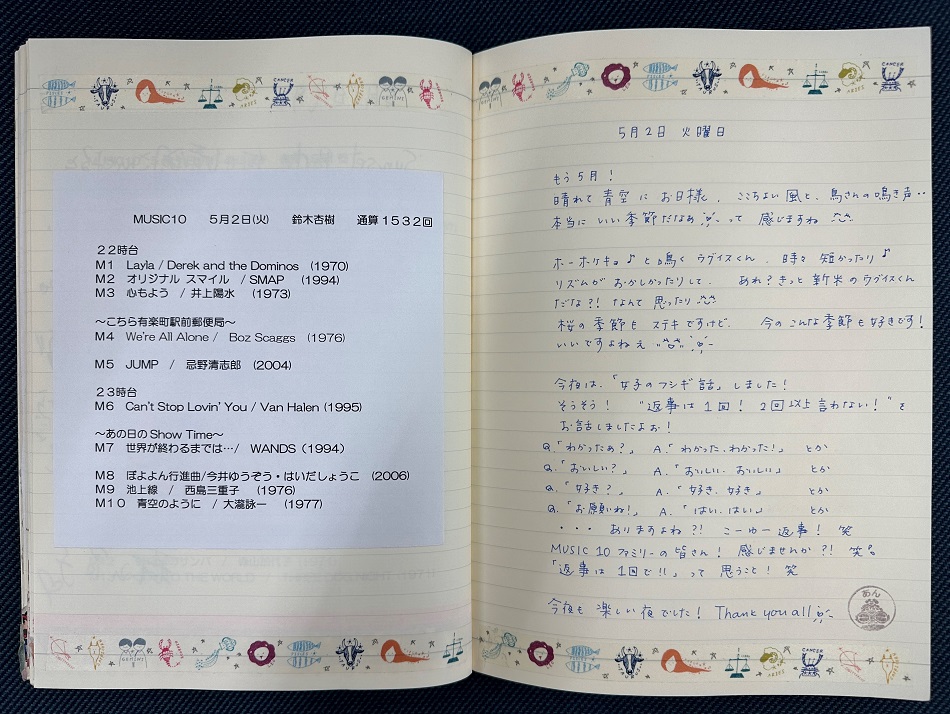 MUSIC10 5月2日(火) 鈴木杏樹 通算1532回
22時台
M1 Layla / Derek and the Dominos (1970)
M2 オリジナル スマイル / SMAP (1994)
M3 心もよう / 井上陽水 (1973)
～こちら有楽町駅前郵便局～
M4 We're All Alone / Boz Scaggs (1976)
M5 JUMP / 忌野清志郎 (2004)
23時台
M6 Can't Stop Lovin' You / Van Halen (1995)
～あの日の Show Time～
M7 世界が終わるまでは…/ WANDS (1994)
M8 ぼよよん行進曲/今井ゆうぞう・はいだしょうこ (2006)
M9 池上線 / 西島三重子 (1976)
M10 青空のように / 大瀧詠一 (1977)
5月2日 火曜日
もう5月!
晴れて 青空に お日様、 ここちよい 風と、鳥さんの鳴き声‥
本当に いい 季節だなぁ って 感じますね
ホーホケキョ♪ と鳴く ウグイスくん、時々 短かったり♪
リズムが おかしかったりして、 あれ?きっと 新米のウグイスくん
だな?! なんて 思ったり
桜の季節も ステキですけど、 今の こんな 季節も好きです!
いいですよねぇ
今夜は、「女子のフシギ話」しました!
そうそう! "返事は1回! 2回以上言わない!"を
お話しましたよぉ!
Q.「わかったぁ?」 A.「わかった、わかった!」 とか
Q.「おいしい?」 A.「おいしい、おいしい」 とか
Q.「好き?」 A.「好き、好き」 とか
Q.「お願いね!」 A.「はい、はい」 とか
・・・ ありますよね?! こーゆー返事! 笑
MUSIC 10 ファミリーの皆さん! 感じませんか?! 笑。
「返事は1回で!!」って 思うこと! 笑
今夜も 楽しい夜でした! Thank you all
あん
PISCES
ARIES
CANCER
GEMINI